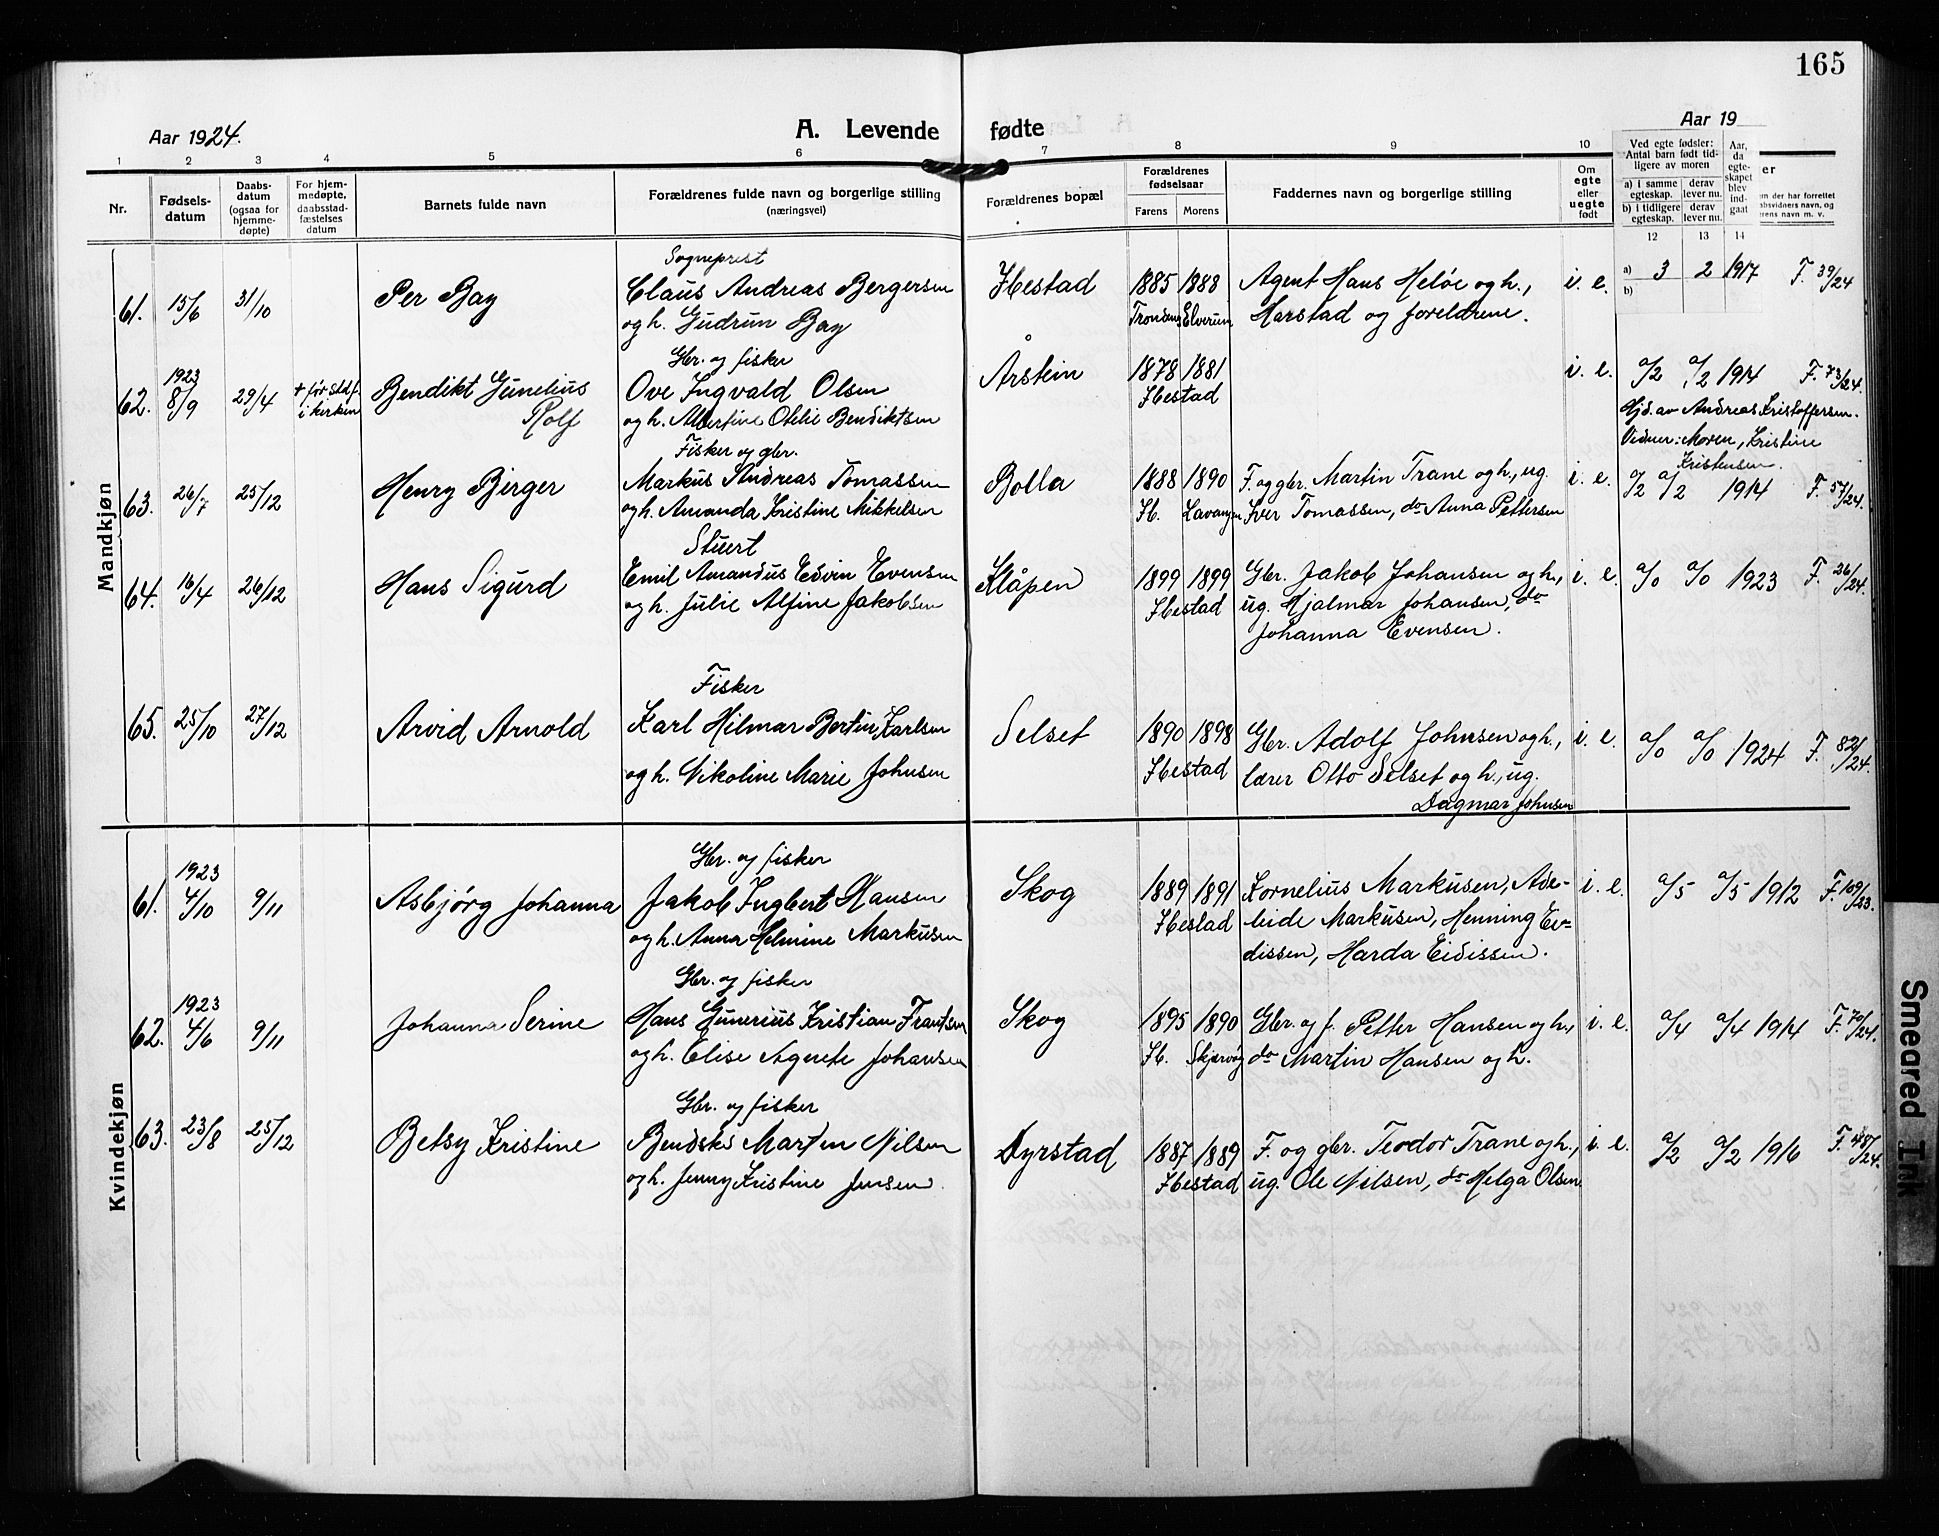 165
Aar 1924.
A. Levende fødte
Aar 19
1 2 3 4 5 6 7 8 9 10
Nr.
Fødsels-
datum
Daabs-
datum
(ogsaa for
hjemme-
døpte)
For hjem-
medøpte,
daabsstad-
fæstelses
datum
Barnets fulde navn
Forældrenes fulde navn og borgerlige stilling
(næringsvei)
Forældrenes bopæl
Forældrenes
fødselsaar
Farens Morens
Faddernes navn og borgerlige stilling
Om
egte
eller
uegte
født
Ved egte fødsler:
Antal barn født tid-
ligere av moren
a) i samme
egteskap.
derav
lever nu.
b) i tidligere
egteskap.
derav
lever nu.
Aar,
da
egte-
skapet
blev
ind-
gaat
12 13 14
er
n der har forrettet
absvidners navn, og
rens navn m. v.
Mandkjøn
Sogneprest
61. 15/6 31/10 Per Bay Claus Andreas Bergersen Ibestad 1885 1888 Agent Hans Heløe og h., i. e. a) 3 2 1917 F. 39/24
b)
og h. Gudrun Bay Trondenes Elverum Harstad og foreldrene.
Gbr. og fisker
1923
62. 8/9 29/4 + før stdf. i kirken Bendikt Gunelius Ove Ingvald Olsen Årstein 1878 1881 i. e. a/2 a/2 1914 F. 73/24.
Rolf og h. Albertine Otelie Bendiktsen Ibestad Hjd. av Andreas Kristoffersen.
Vidner: Moren, Kristine
Kristensen.
Fisker og gbr.
63. 26/7 25/12 Henry Birger Markus Andreas Tomassen Bolla 1888 1890 F. og gbr. Martin Trane og h., ug. i. e. a/2 a/2 1914 F. 57/24.
og h. Amanda Kristine Mikkelsen Ib. Lavangen Iver Tomassen, do Anna Pettersen
Stuert
64. 16/4 26/12 Hans Sigurd Emil Amandus Edvin Evensen Klåpen 1899 1899 Gbr. Jakob Johansen og h., i. e. a/0 a/0 1923 F. 36/24.
og h. Julie Alfine Jakobsen Ibestad ug. Hjalmar Johansen, do
Johanna Evensen.
Fisker
65. 25/10 27/12 Arvid Arnold Karl Hilmar Bertin Karlsen Selset 1890 1898 Gbr. Adolf Johnsen og h., i. e. a/0 a/0 1924 F. 82/24.
og h. Nikoline Marie Johnsen Ibestad lærer Otto Selset og h., ug.
Dagmar Johnsen
Kvindekjøn
Gbr. og fisker
1923
61. 4/10 9/11 Asbjørg Johanna Jakob Ingbert Hansen Skog 1889 1891 Kornelius Markusen, Ade- i. e. a/5 a/5 1912 F. 109/23.
og h. Anna Helmine Markusen Ibestad leide Markusen, Henning Ei-
dissen, Harda Eidissen.
Gbr. og fisker
1923
62. 4/6 9/11 Johanna Serine Hans Gunerius Kristian Frantsen Skog 1895 1890 Gbr. og f. Petter Hansen og h., i. e. a/4 a/4 1914 F. 70/24.
og h. Elise Agnete Johansen Ib. Skjervøy do Martin Hansen og h.
Gbr. og fisker
63. 23/8 25/12 Betsy Kristine Martin Nilsen Dyrstad 1887 1889 F. og gbr. Teodor Trane og h., i. e. a/2 a/2 1916 F. 48/24.
og h. Jenny Kristine Jensen Ibestad ug. Ole Nilsen, do Helga Olsen
Smeared Ink